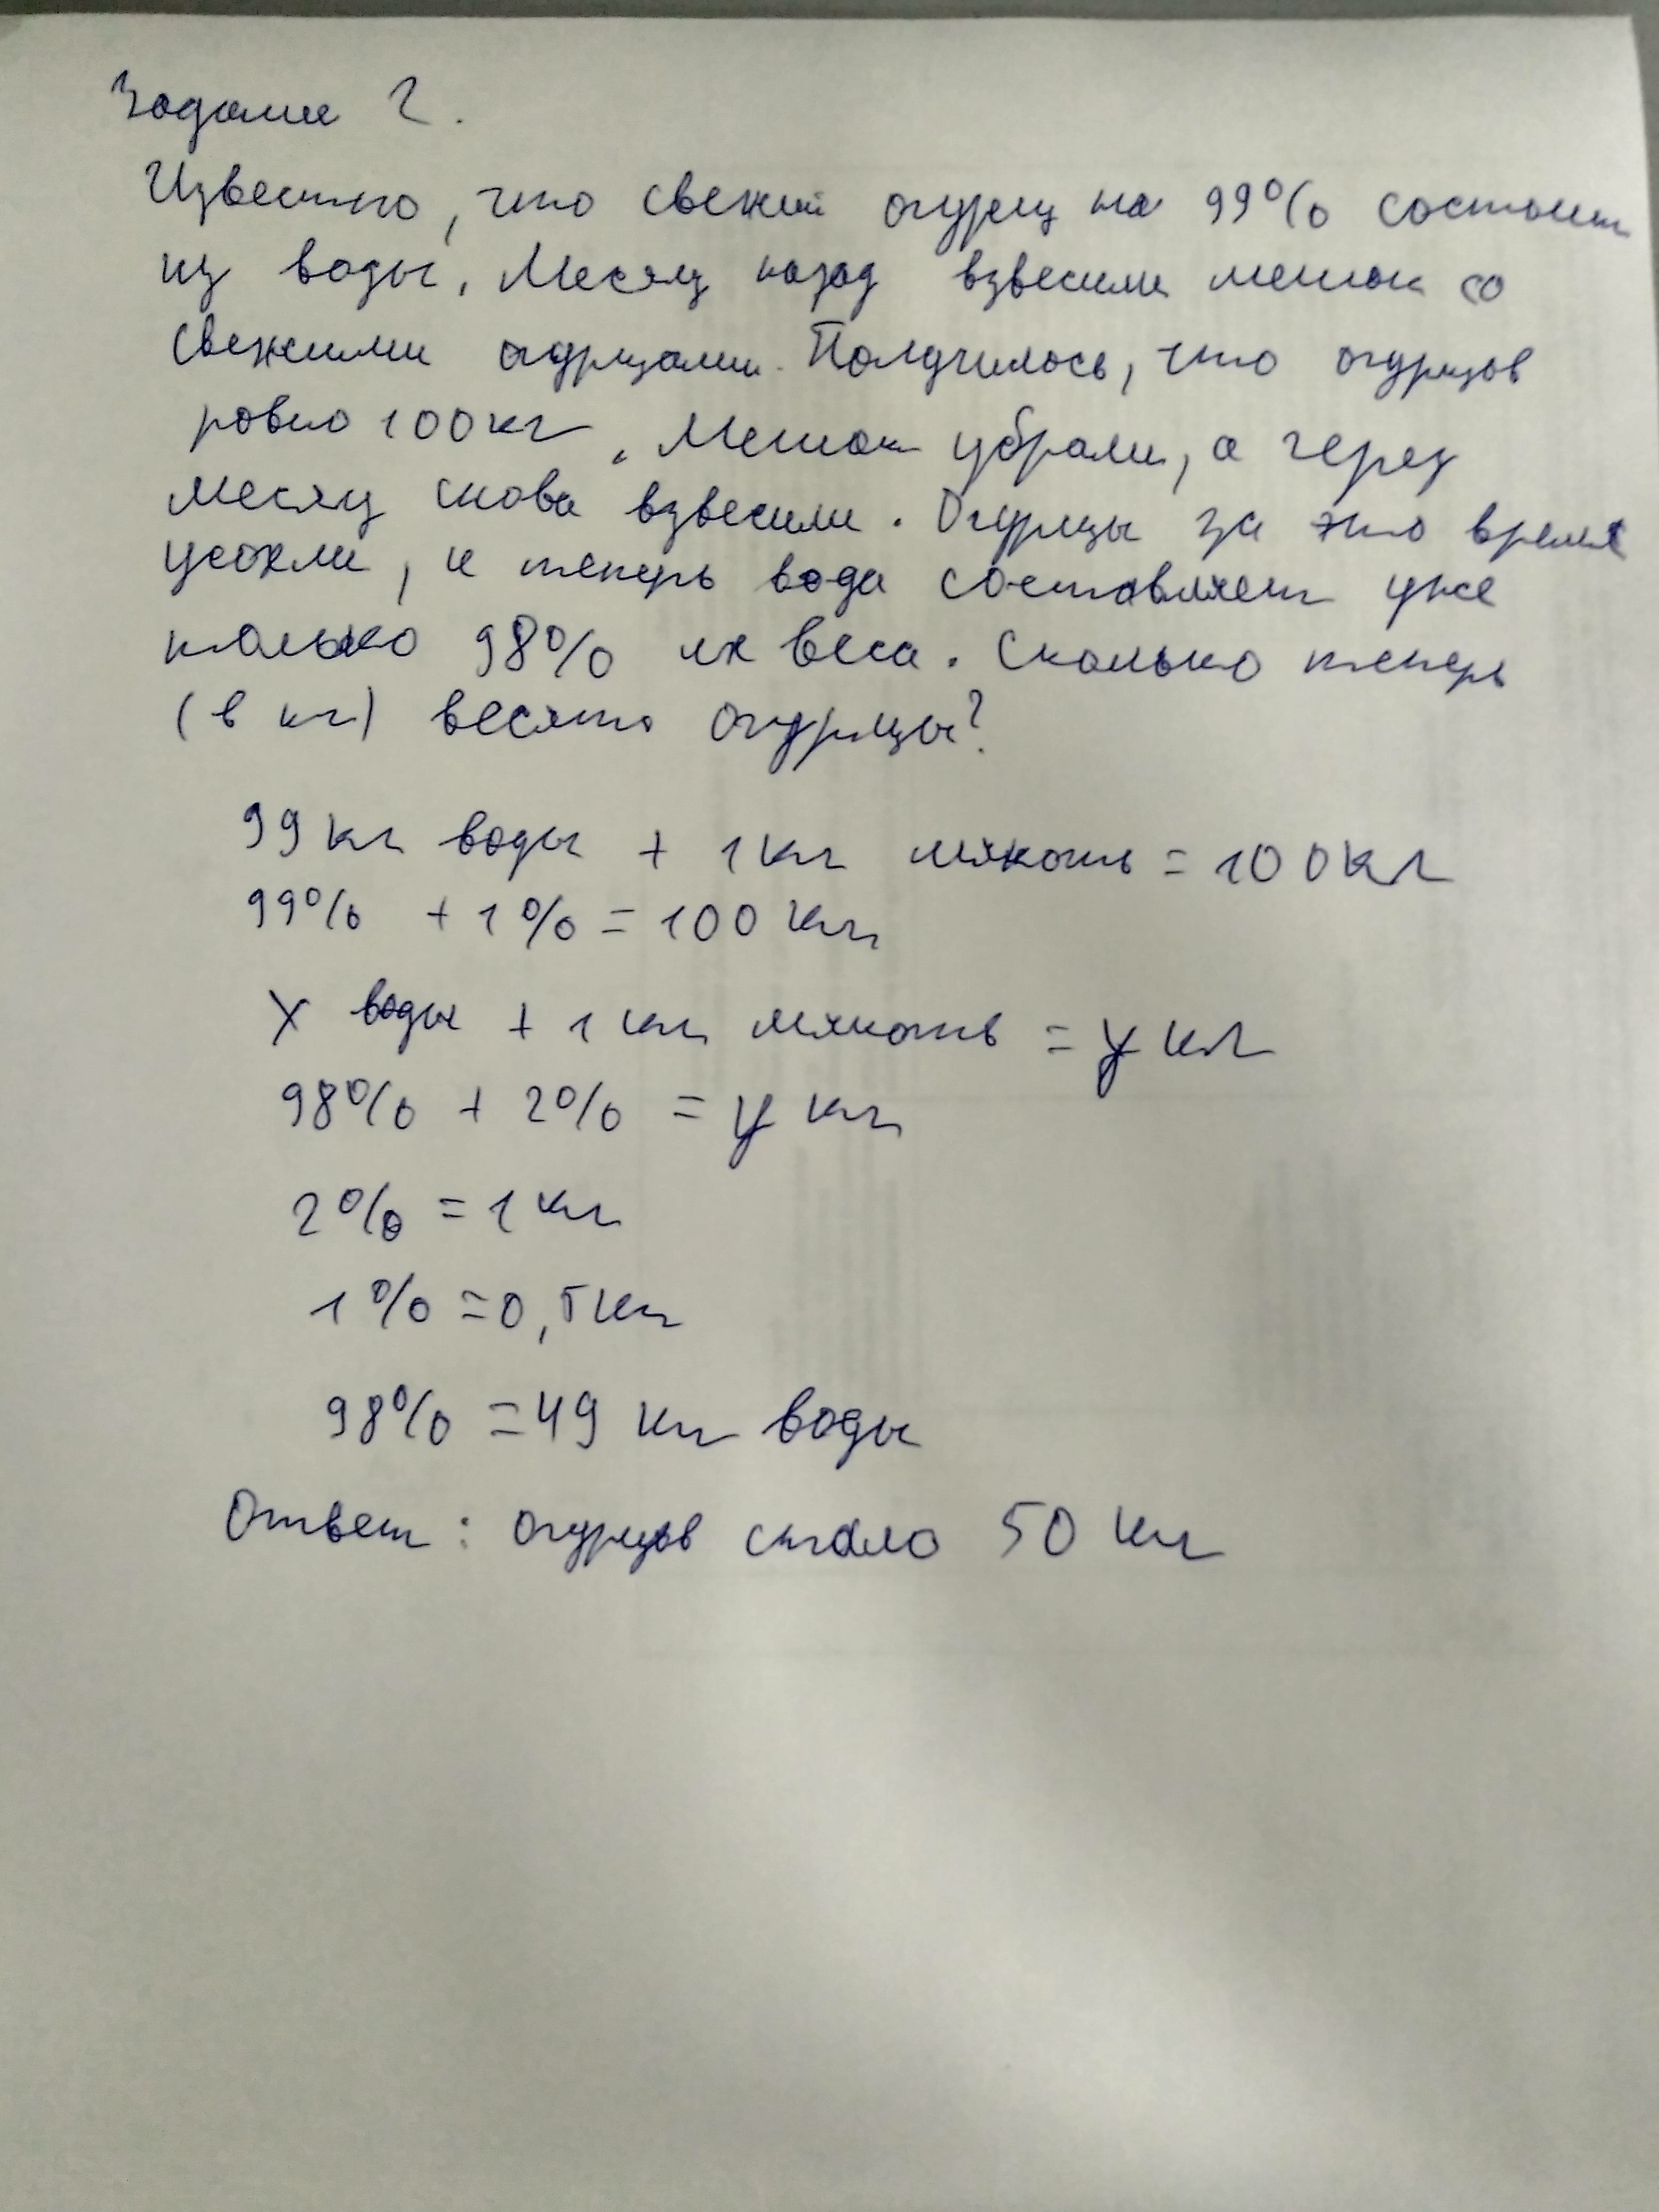 Задание 2.
Известно, что свежий огурец на 99% состоит
из воды. Месяц назад взвесили мешок со
свежими огурцами. Получилось, что огурцов
ровно 100 кг. Мешок убрали, а через
месяц снова взвесили. Огурцы за это время
усохли, и теперь вода составляет уже
только 98% их веса. Сколько теперь
(в кг) весят огурцы?
99 кг воды + 1 кг мякоть = 100 кг
99% + 1% = 100 кг
x воды + 1 кг мякоть = y кг
98% + 2% = y кг
2% = 1 кг
1% = 0,5 кг
98% = 49 кг воды
Ответ: огурцов стало 50 кг